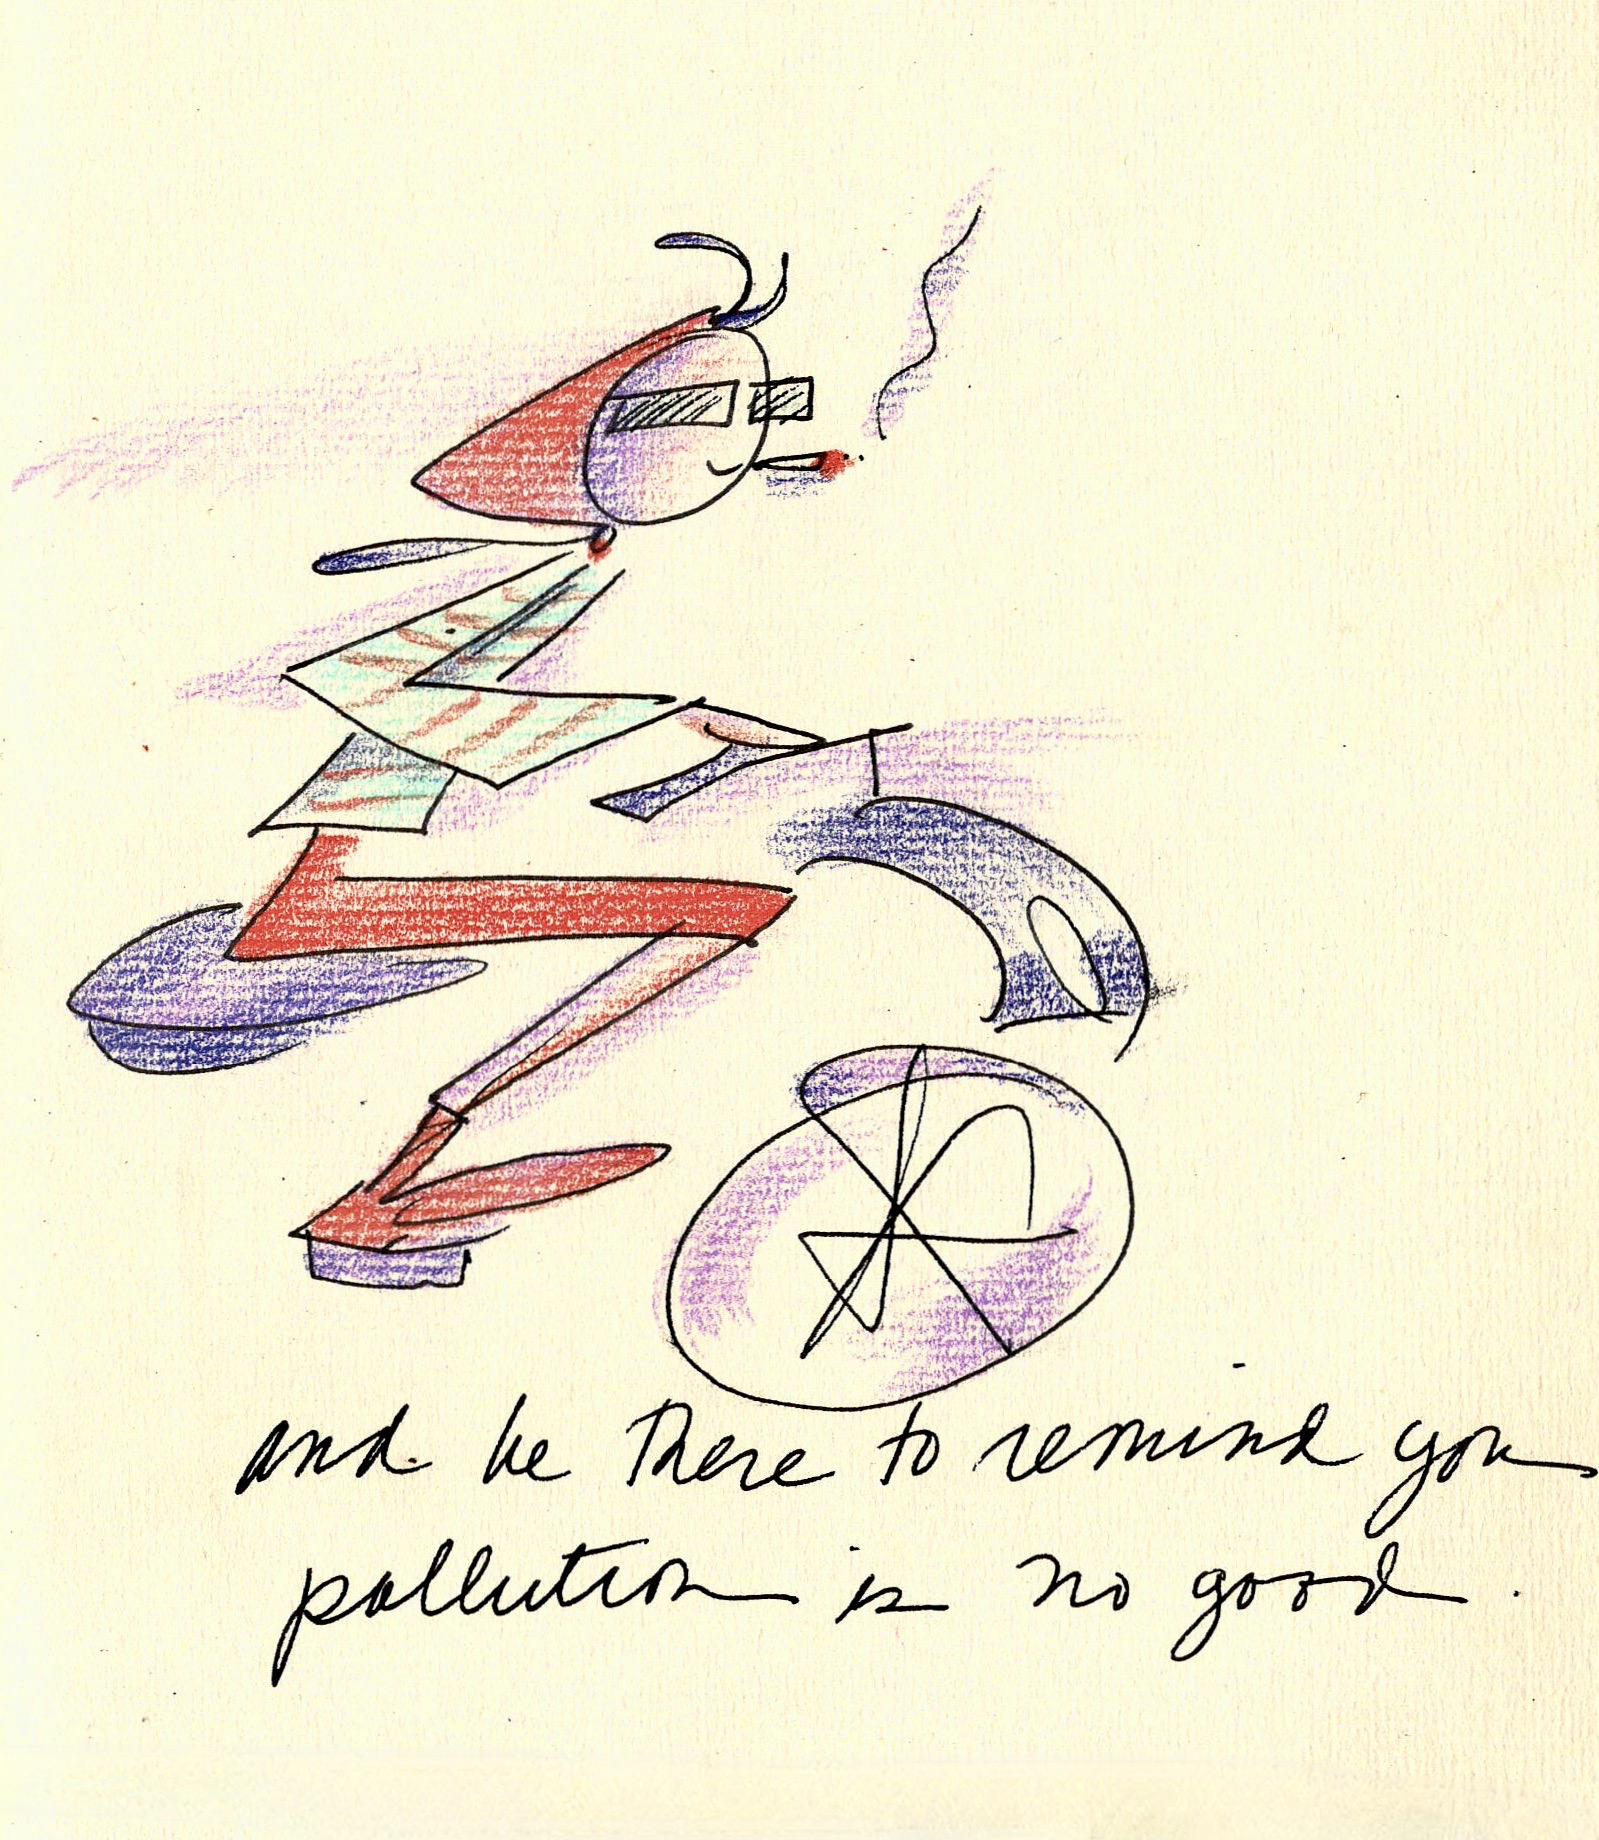 and be there to remind you
pollution is no good.